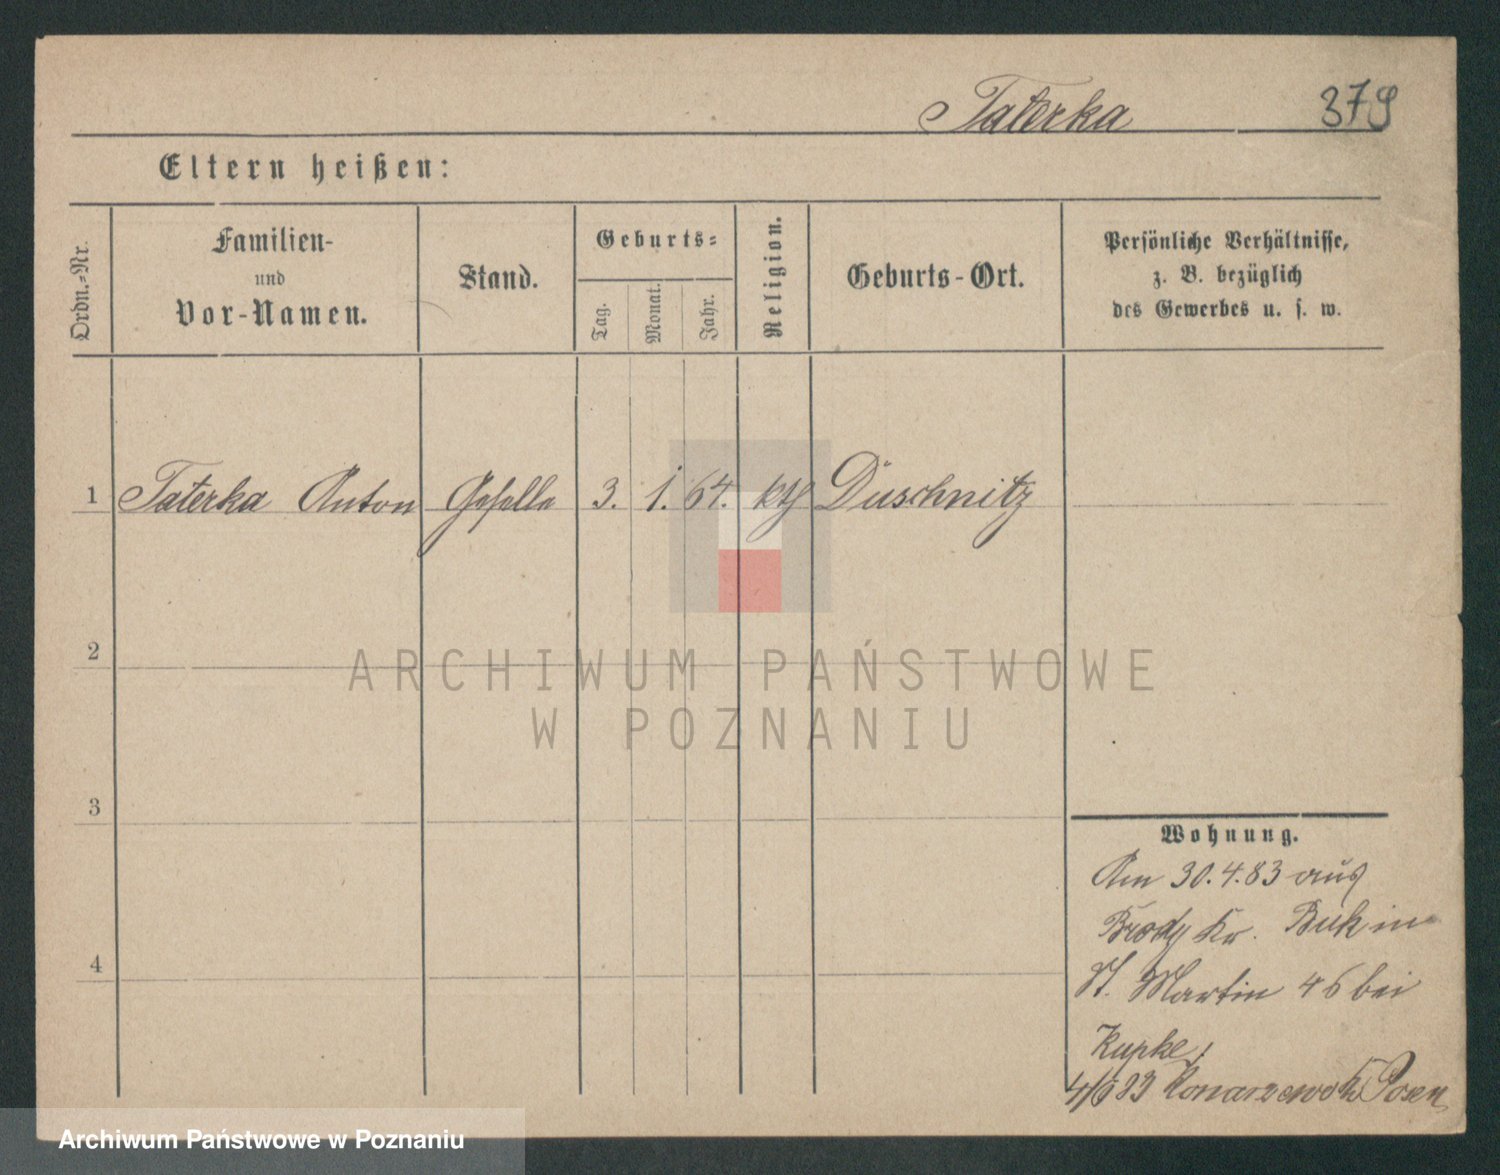 Taterka 379
Eltern heißen:
Ordn.-Nr.
Familien-
und
Vor-Namen.
Stand.
Geburts-
Tag.
Monat.
Jahr.
Religion.
Geburts-Ort.
Persönliche Verhältnisse,
z. B. bezüglich
des Gewerbes u. s. w.
1 Taterka Anton Geselle 3. 1. 64. kth Duschnitz
2
ARCHIWUM PAŃSTWOWE
W POZNANIU
3
4
Wohnung.
Am 30.4.83 aus
Brody Kr. Buk in
St. Martin 46 bei
Kupke,
4/6 83 Konarzewo Kr Posen
Archiwum Państwowe w Poznaniu